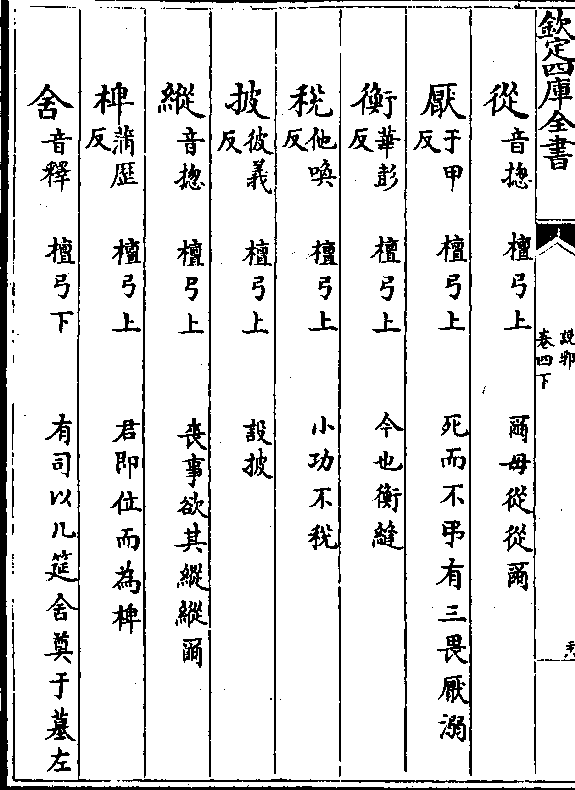 欽定四庫全書
說郛
卷四下
從 音揔 檀弓上 爾毋從從爾
厭 于甲反 檀弓上 死而不弔有三畏厭溺
衡 華彭反 檀弓上 今也衡縫
稅 他喚反 檀弓上 小功不稅
披 彼義反 檀弓上 設披
縱 音揔 檀弓上 喪事欲其縱縱爾
椑 蒲歷反 檀弓上 君即位而為椑
舍 音釋 檀弓下 有司以几筵舍奠于墓左